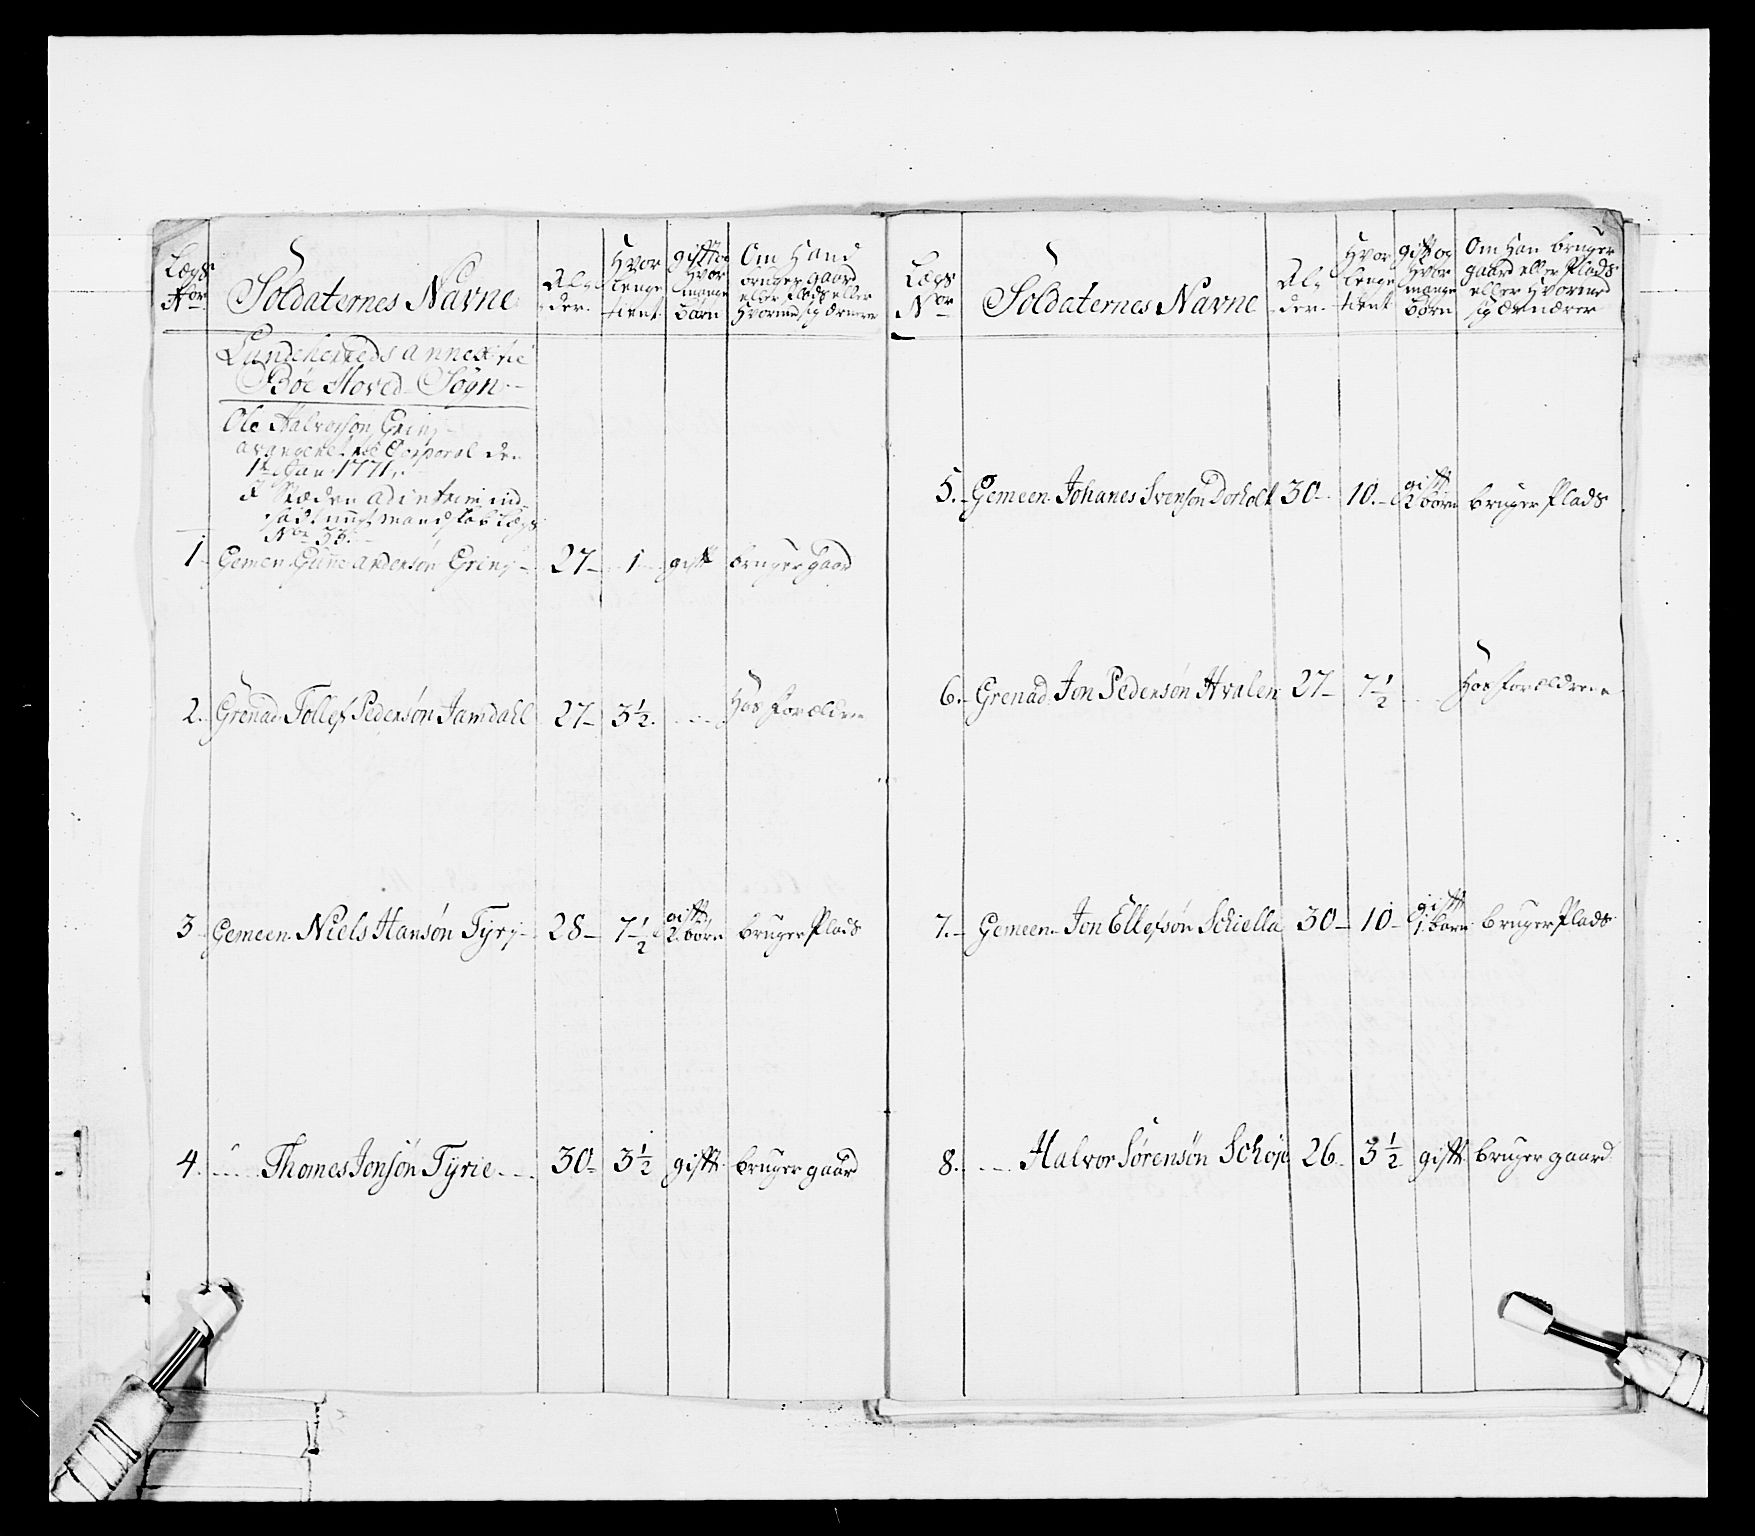 Lægs
Nor
Soldaternes Navne
Al=
der.
Hvor
lenge
tient
gift og
Hvor
mange
börn
Om Hand
bruger gaard
eller Plads eller
Hvormed sig Ærnærer
Lundehereds annex til
Böe Hoved Sogn.
Ole Halvorsøn Gring
avangeret til Corporal den
1te Jan: 1771.
J Stæden ad interim ind
sadt mandskab Lægs
No 33.
1 Gemen Gune andersøn Gring 27 1 gift bruger gaard
2. Grenad. Tollef Pedersøn Jamdall 27 3½ .... Hos Forældrene
3 Gemeen Niels Hansøn Tyri 28 7½ gift 2 börn bruger Plads
4. ..... Thomes Jonsøn Tyrie 30 3½ gift bruger gaard
Lægs
Nor
Soldaternes Navne
Al=
der.
Hvor
lenge
tient
gift og
Hvor
mange
börn
Om Han bruger
gaard eller Plads
eller Hvormed
sig ærnærer
5. Gemeen Johanes Svensøn Dorholt 30 10. gift 2 börn bruger Plads
6. Grenad. Jon Pedersøn Hvalen 27 7½ .... Hos Forældrene
7. Gemeen Jon Ellefsøn Schiella 30 10 gift 1. barn bruger Plads
8. .... Halvor Sørensøn Schoje 26 3½ gift bruger gaard